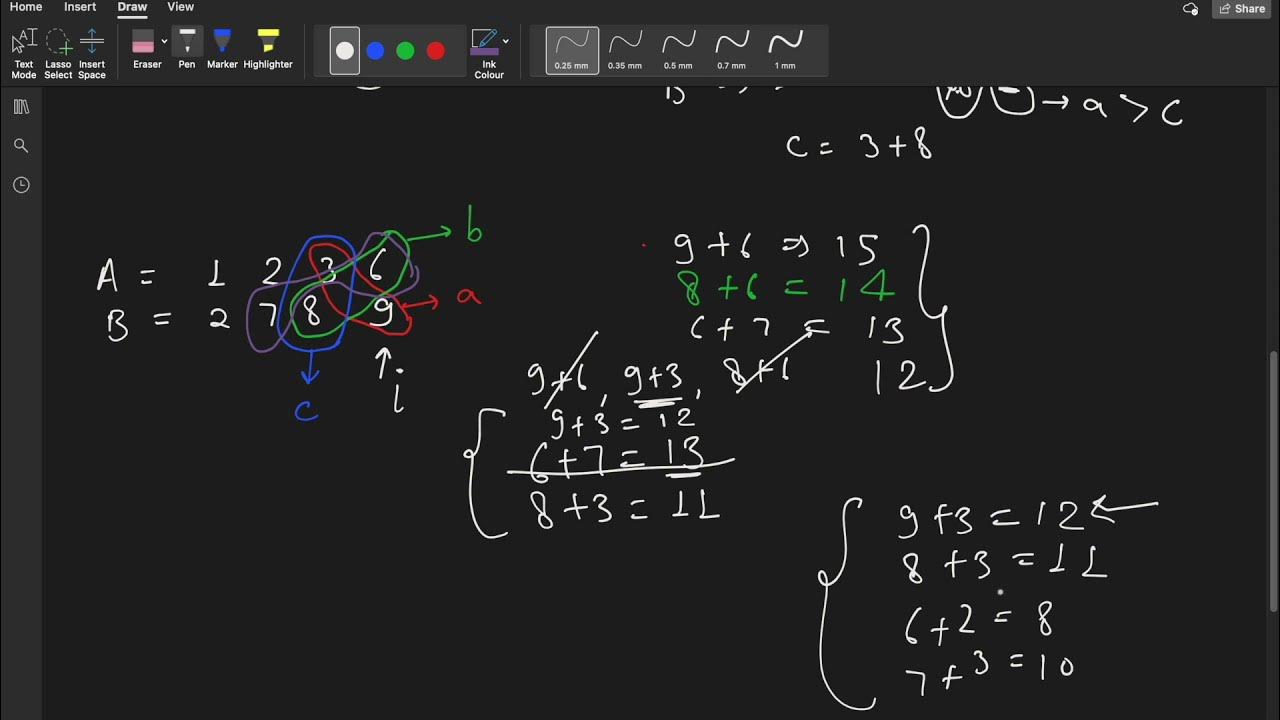 Home Insert Draw View Share
Text Mode
Lasso Select
Insert Space
Eraser
Pen
Marker
Highlighter
Ink Colour
0.25 mm 0.35 mm 0.5 mm 0.7 mm 1 mm
→ a > c
c = 3+8
A = 1 2 3 6
B = 2 7 8 9
b
a
c
i
9+6 ⇒ 15
8+6 = 14
6+7 = 13
12
9+6, 9+3, 8+6
9+3 = 12
6+7 = 13
8+3 = 11
9+3 = 12 ←
8+3 = 11
6+2 = 8
7+3 = 10